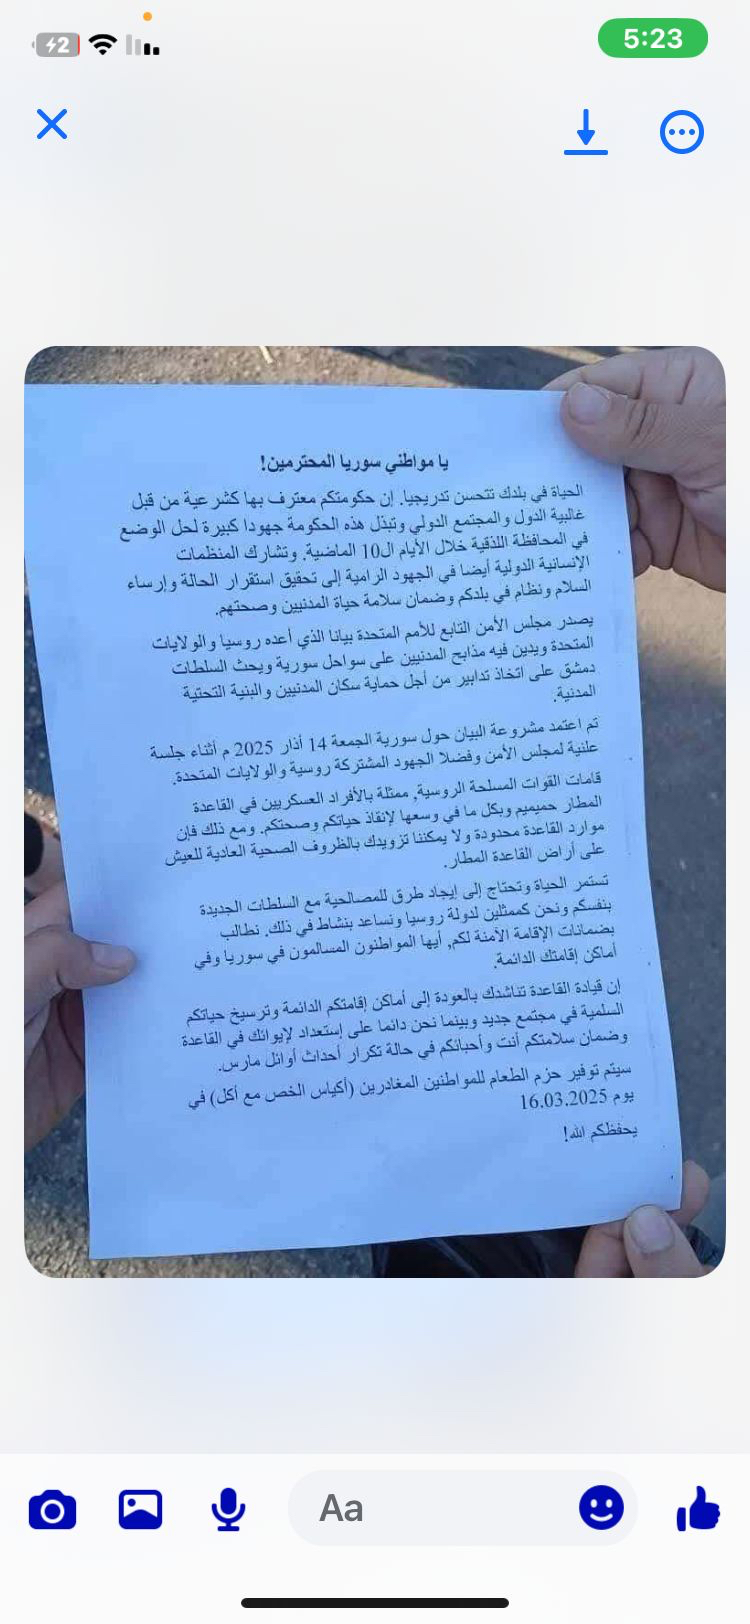 42
5:23
يا مواطني سوريا المحترمين!
الحياة في بلدك تتحسن تدريجيا. إن حكومتكم معترف بها كشرعية من قبل
غالبية الدول والمجتمع الدولي وتبذل هذه الحكومة جهودا كبيرة لحل الوضع
في المحافظة اللذقية خلال الأيام ال10 الماضية. وتشارك المنظمات
الإنسانية الدولية أيضا في الجهود الرامية إلى تحقيق استقرار الحالة وإرساء
السلام ونظام في بلدكم وضمان سلامة حياة المدنيين وصحتهم.
يصدر مجلس الأمن التابع للأمم المتحدة بيانا الذي أعده روسيا والولايات
المتحدة ويدين فيه مذابح المدنيين على سواحل سورية ويحث السلطات
دمشق على اتخاذ تدابير من أجل حماية سكان المدنيين والبنية التحتية
المدنية.
تم اعتماد مشروعة البيان حول سورية الجمعة 14 أذار 2025 م أثناء جلسة
علنية لمجلس الأمن وفضلا الجهود المشتركة روسية والولايات المتحدة.
قامات القوات المسلحة الروسية, ممثلة بالأفراد العسكريين في القاعدة
المطار حميميم وبكل ما في وسعها لإنقاذ حياتكم وصحتكم. ومع ذلك فإن
موارد القاعدة محدودة ولا يمكننا تزويدك بالظروف الصحية العادية للعيش
على أراض القاعدة المطار.
تستمر الحياة وتحتاج إلى إيجاد طرق للمصالحية مع السلطات الجديدة
بنفسكم ونحن كممثلين لدولة روسيا ونساعد بنشاط في ذلك. نطالب
بضمانات الإقامة الأمنة لكم, أيها المواطنون المسالمون في سوريا وفي
أماكن إقامتك الدائمة.
إن قيادة القاعدة تناشدك بالعودة إلى أماكن إقامتكم الدائمة وترسيخ حياتكم
السلمية في مجتمع جديد وبينما نحن دائما على إستعداد لإيوائك في القاعدة
وضمان سلامتكم أنت وأحبائكم في حالة تكرار أحداث أوائل مارس.
سيتم توفير حزم الطعام للمواطنين المغادرين (أكياس الخص مع أكل) في
يوم 16.03.2025
يحفظكم الله!
Aa